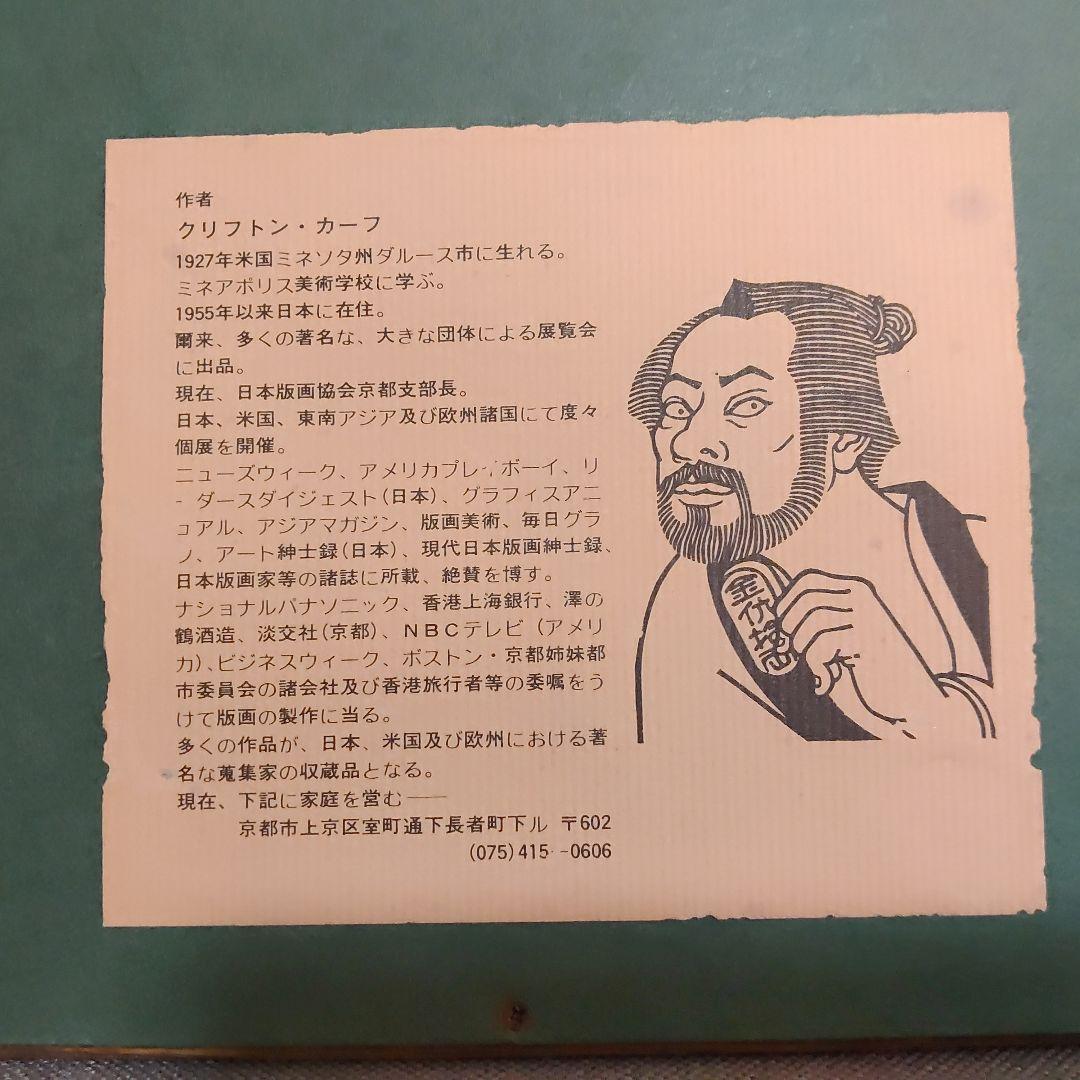 作者
クリフトン・カーフ
1927年米国ミネソタ州ダルース市に生れる。
ミネアポリス美術学校に学ぶ。
1955年以来日本に在住。
爾来、多くの著名な、大きな団体による展覧会
に出品。
現在、日本版画協会京都支部長。
日本、米国、東南アジア及び欧州諸国にて度々
個展を開催。
ニューズウィーク、アメリカプレイボーイ、リ
ーダースダイジェスト(日本)、グラフィスアニ
ュアル、アジアマガジン、版画美術、毎日グラ
フ、アート紳士録(日本)、現代日本版画紳士録、
日本版画家等の諸誌に所載、絶賛を博す。
ナショナルパナソニック、香港上海銀行、澤の
鶴酒造、淡交社(京都)、NBCテレビ(アメリ
カ)、ビジネスウィーク、ボストン・京都姉妹都
市委員会の諸会社及び香港旅行者等の委嘱をう
けて版画の製作に当る。
多くの作品が、日本、米国及び欧州における著
名な蒐集家の収蔵品となる。
現在、下記に家庭を営む──
京都市上京区室町通下長者町下ル 〒602
(075)415-0606